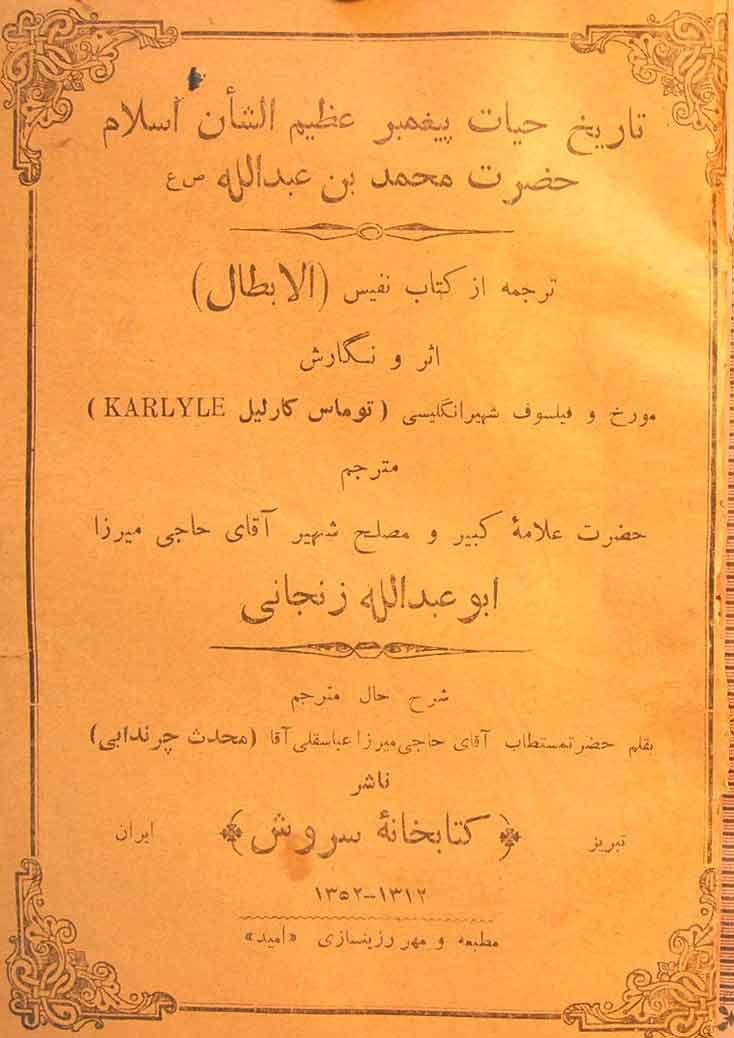 تاریخ حیات پیغمبر عظیم الشأن اسلام
حضرت محمد بن عبدالله ص ع
ترجمه از کتاب نفیس (الابطال)
اثر و نگارش
مورخ و فیلسوف شهیر انگلیسی (توماس کارلیل KARLYLE)
مترجم
حضرت علامهٔ کبیر و مصلح شهیر آقای حاجی میرزا
ابو عبدالله زنجانی
شرح حال مترجم
بقلم حضرتمستطاب آقای حاجی میرزا عباسقلی آقا (محدث چرندابی)
ناشر
تبریز ﴿کتابخانهٔ سروش﴾ ایران
۱۳۱۲–۱۳۵۲
مطبعه و مهر رزینسازی «امید»